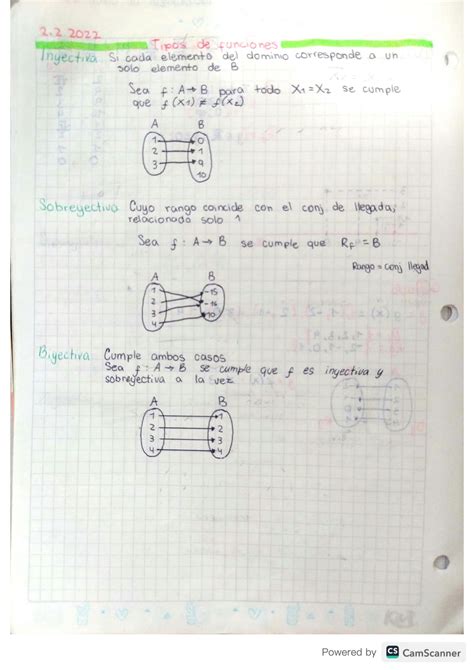 2.2 2022
Tipos de funciones
Inyectiva Si cada elemento del dominio corresponde a un
solo elemento de B
Sea f: A→B para todo X1=X2 se cumple
que f(x1) ≠ f(x2)
A B
1 0
2 1
3 9
10
Sobreyectiva Cuyo rango coincide con el conj. de llegada,
relacionado solo 1
Sea f: A→B se cumple que Rf = B
Rango = conj llegad
A B
1 -15
2 -16
3 10
4
Biyectiva Cumple ambos casos
Sea f: A→B se cumple que f es inyectiva y
sobreyectiva a la vez
A B
1 1
2 2
3 3
4 4
Powered by CS CamScanner